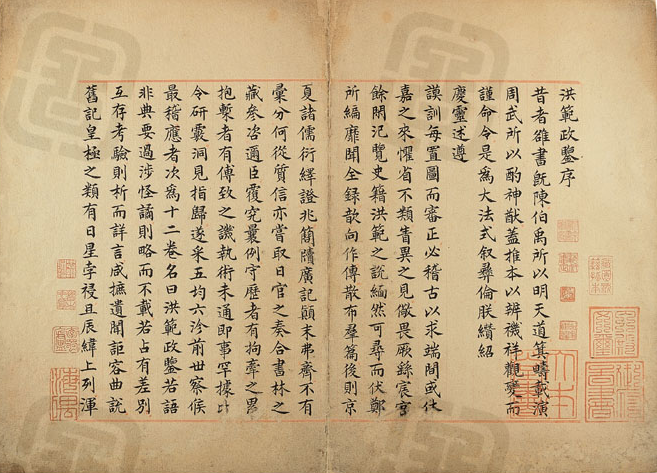 洪範政鑒序
昔者雒書既陳伯禹所以明天道箕疇載演
周武所以酌神猷蓋推本以辨機祥觀變而
謹命令是為大法式叙彝倫朕纘紹
慶靈述遵
謨訓每置圖而審正必稽古以求端閒或休
嘉之來懼省不類眚異之見儆畏厥繇宸宫
餘閒汜覽史籍洪範之説緬然可尋而伏鄭
所編靡聞全録歆向作傳散布羣篇後則京
夏諸儒衍繹證兆簡牘廣記顛末弗齊不有
彙分何從質信亦嘗取日官之奏合書林之
藏參咨邇臣覆究曩例守歷者有拘牽之累
抱槧者有傅致之譏執術未通即事罕據比
令研覈洞見指歸遂采五均六沴前世察候
最稽應者次為十二卷名曰洪範政鑒若語
非典要過涉怪譎則略而不載若占有差別
互存考驗則析而詳言咸摭遺聞詎容曲説
舊記皇極之類有日星孛祲且辰緯上列渾